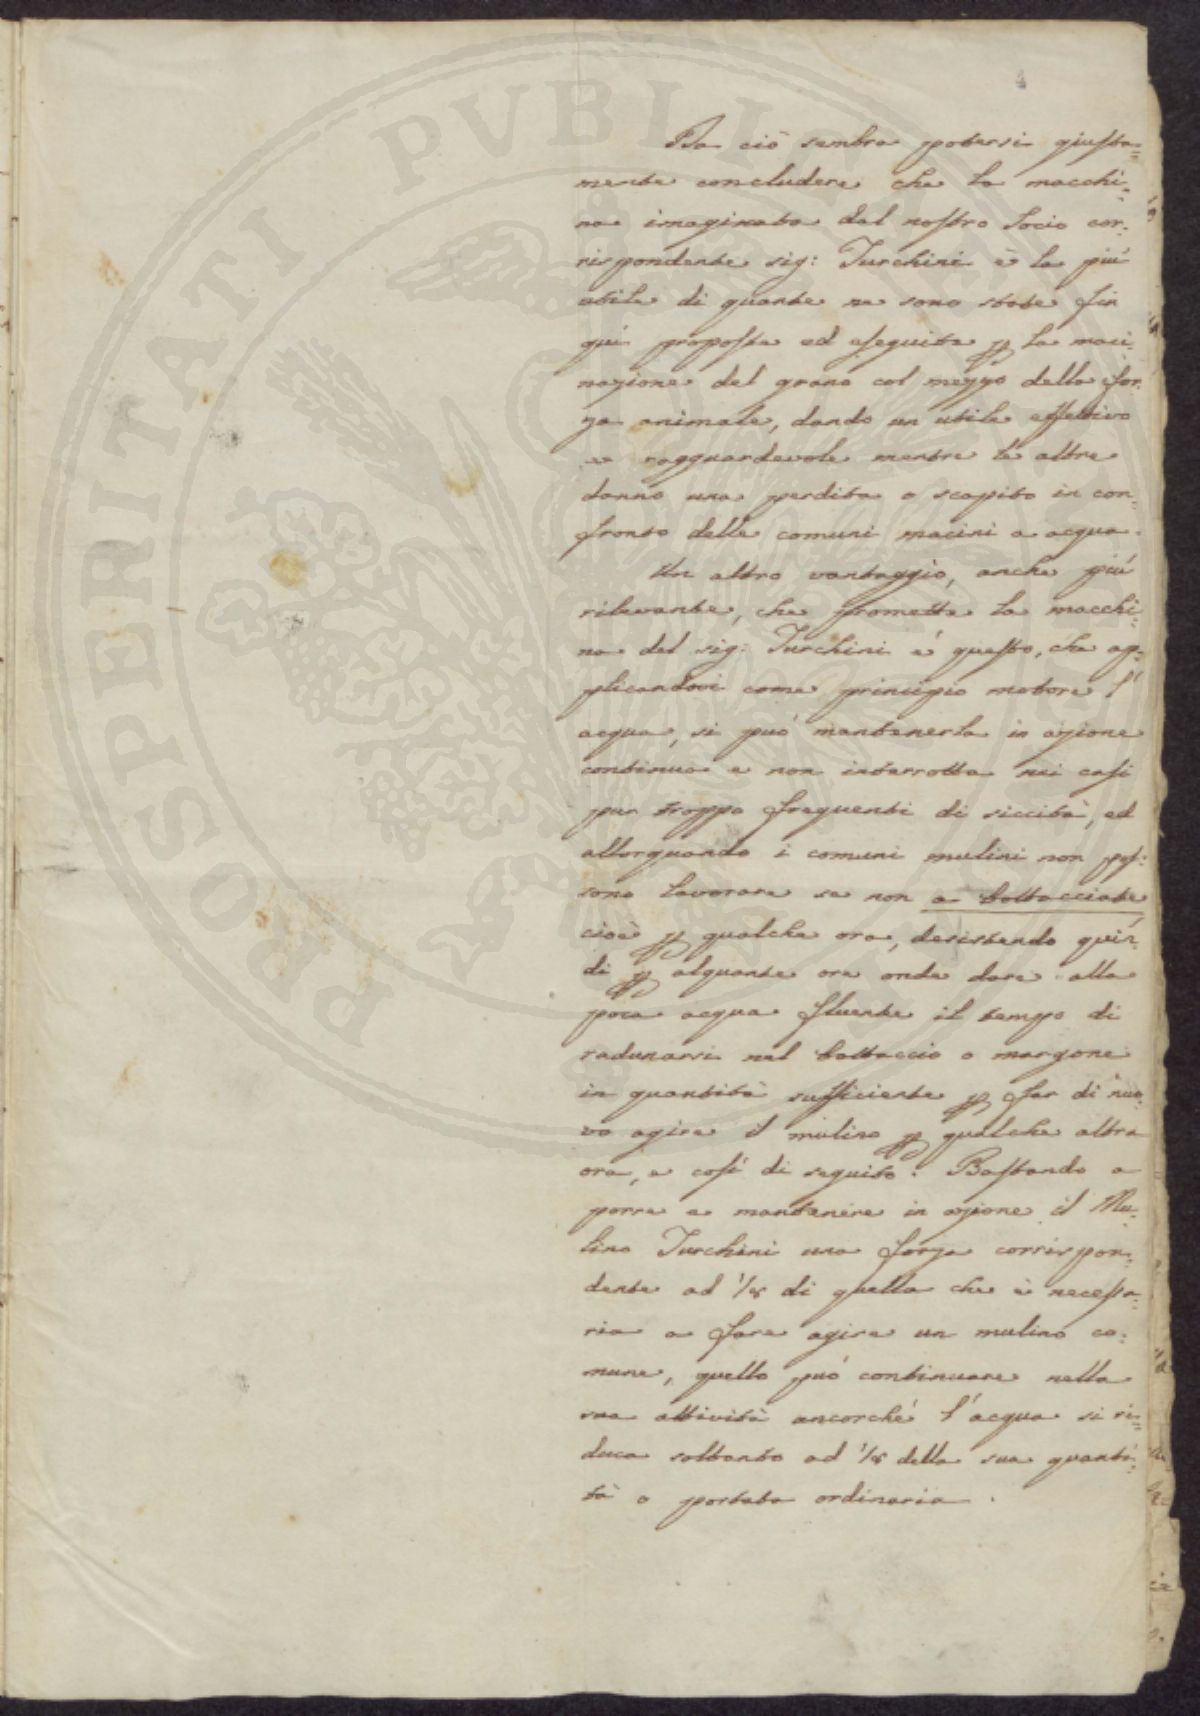 4
Da ciò sembra potersi giusta=
mente concludere che la macchi=
na imaginata dal nostro Socio cor=
rispondente sig: Turchini è la più
utile di quante ne sono state fin
quì proposte ed eseguite p la maci=
nazione del grano col mezzo della for=
za animale, dando un utile effettivo
e ragguardevole mentre le altre
danno una perdita o scapito in con=
fronto delle comuni macini a acqua.
Un altro vantaggio, anche più
rilevante, che promette la macchi=
na del sig: Turchini è questo, che ap=
plicandovi come principio motore l'
acqua, si può mantenerla in azione
continua e non interrotta nei casi
pur troppo frequenti di siccità, ed
allorquando i comuni mulini non pos=
sono lavorare se non a bottacciate
cioè p qualche ora, desistendo quin=
di p alquante ore onde dare alla
poca acqua fluente il tempo di
radunarsi nel bottaccio o margone
in quantità sufficiente p far di nuo=
vo agire il mulino p qualche altra
ora, e così di seguito: Bastando a
porre e mantenere in azione il Mu=
lino Turchini una forza corrispon=
dente ad 1/8 di quella che è necessa=
ria a fare agire un mulino co=
mune, quello può continuare nella
sua attività ancorché l'acqua si ri=
duca soltanto ad 1/8 della sua quanti=
tà o portata ordinaria.
PROSPERITATI PVBLICAE